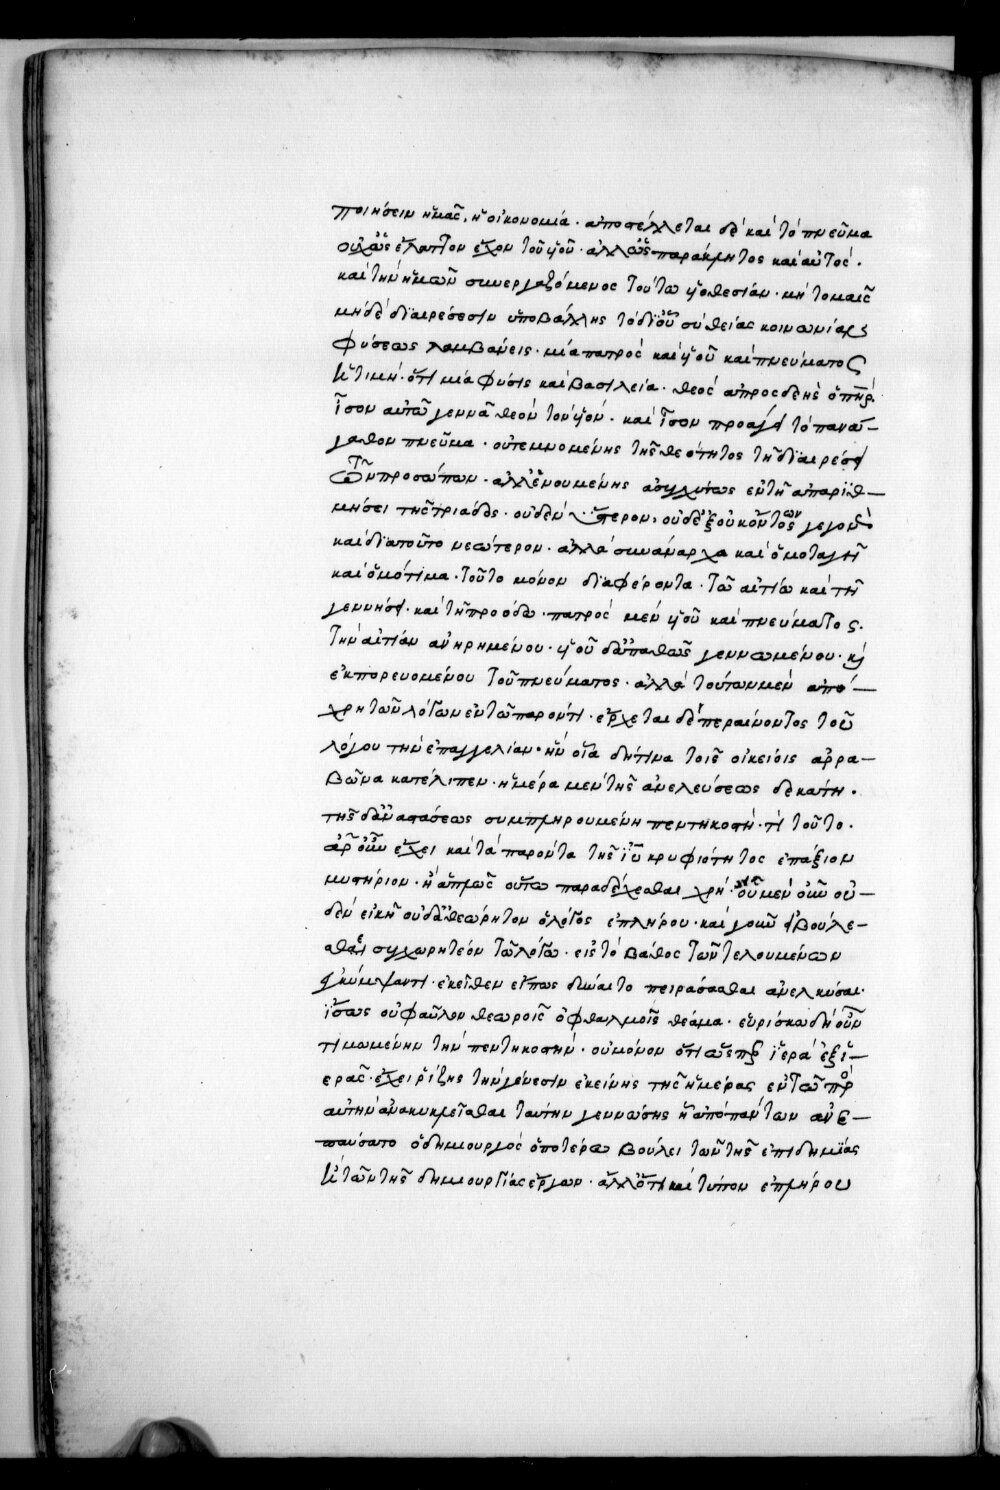 ποιήσειν ἡμᾶς, ἡ οἰκονομία · ἀποστέλλεται δὲ καὶ τὸ πνεῦμα
οὐχ ὡς ἔλαττον ἔχον τοῦ υἱοῦ · ἀλλ' ὡς παράκλητος καὶ αὐτός ·
καὶ τὴν ἡμῶν συνεργαζόμενος τούτω υἱοθεσίαν · μὴ τομαῖς
μηδὲ διαιρέσεσιν ὑποβάλλης τὸ δι' οὗ σὺ θείας κοινωνίαν
φύσεως λαμβάνεις · μία πατρὸς καὶ υἱοῦ καὶ πνεύματος
ἡ τιμή · ὅτι μία φύσις καὶ βασιλεία · θεὸς ἀπροσδεὴς ὁ πηρ ·
ἶσον αὐτῶ γεννᾶ θεὸν τὸν υἱόν · καὶ ἶσον προάγει τὸ πανά-
γαθον πνεῦμα · οὐ τεμνομένης τῆς θεότητος τῆ διαιρέσει
τῶν προσώπων · ἀλλ' ἑνουμένης ἀσυγχύτως ἐν τῆ ἀπαριθ-
μήσει τῆς τριάδος · οὐδὲν ὕστερον, οὐδὲ ἐξ οὐκ ὄντων γεγονὸς
καὶ διὰ τοῦτο νεώτερον · ἀλλὰ συνάναρχα καὶ ὁμοταγῆ
καὶ ὁμότιμα · τοῦτο μόνον διαφέροντα · τῶ αἰτίω καὶ τῆ
γεννήσει · καὶ τῆ προόδω · πατρὸς μὲν υἱοῦ καὶ πνεύματος ·
τὴν αἰτίαν ἀνηρημένου · υἱοῦ δ' ἀπαθῶς γεννωμένου · καὶ
ἐκπορευομένου τοῦ πνεύματος · ἀλλὰ τούτων μὲν ἀπό-
χρη τῶν λόγων ἐν τῶ παρόντι · ἔρχεται δὲ περαίνοντος τοῦ
λόγου τὴν ἐπαγγελίαν · ἣν οἷα δήτινα τοῖς οἰκείοις ἀρρα-
βῶνα κατέλιπεν · ἡμέρα μὲν τῆς ἀνελεύσεως δεκάτη ·
τῆς δ' ἀναστάσεως συμπληρουμένη πεντηκοστή · τί τοῦτο ·
ἆρ' οὖν ἔχει καὶ τὰ παρόντα τῆς ιυ κρυφιότητος ἐπάξιον
μυστήριον · ἢ ἁπλῶς οὕτω παραδέχεσθαι χρή · οὐ μὲν οὖν οὐ-
δὲν εἰκῆ οὐδ' ἀθεώρητον ὁ λόγος ἐπλήρου · καὶ γοῦν εἰ βούλε-
σθαι συγχωρητέον τῶ λόγω · εἰς τὸ βάθος τῶν τελουμένων
ἐγκύψαντι · ἐκεῖθεν εἴπως δύναιτο πειράσασθαι ἀνελκύσαι ·
ἴσως οὐ φαῦλον θεωροῖς ὀφθαλμοῖς θέαμα · εὑρίσκω δὴ οὖν
τιμωμένην τὴν πεντηκοστήν · οὐ μόνον ὅτι ὥσπερ ἱερὰ ἐξ ἱ-
ερᾶς · ἔχει ῥίζης τὴν γένεσιν ἐκείνης τῆς ἡμέρας ἐν τῶ πρὸς
αὐτὴν ἀνακυκλεῖσθαι ταύτην γεννώσης ἢ ἀπὸ πάντων ἀνε-
παύσατο ὁ δημιουργὸς ὁποτέρω βούλει τῶν τῆς ἐπιδημίας
ἢ τῶν τῆς δημιουργίας ἔργων · ἀλλ' ὅτι καὶ τύπον ἐπλήρου